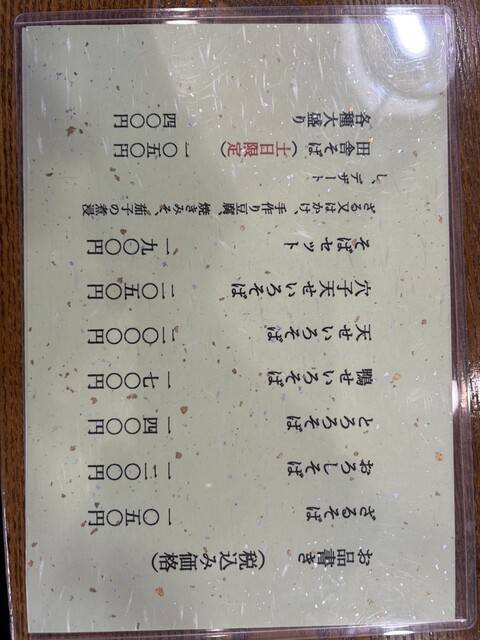 お品書き(税込み価格)
ざるそば 一〇五〇円
おろしそば 一二〇〇円
とろろそば 一四〇〇円
鴨せいろそば 一七〇〇円
天せいろそば 二〇〇〇円
穴子天せいろそば 二〇五〇円
そばセット 一九〇〇円
ざる又はかけ、手作り豆腐、焼きみそ、茄子の煮浸
し、デザート
田舎そば(土日限定) 一〇五〇円
各種大盛り 四〇〇円